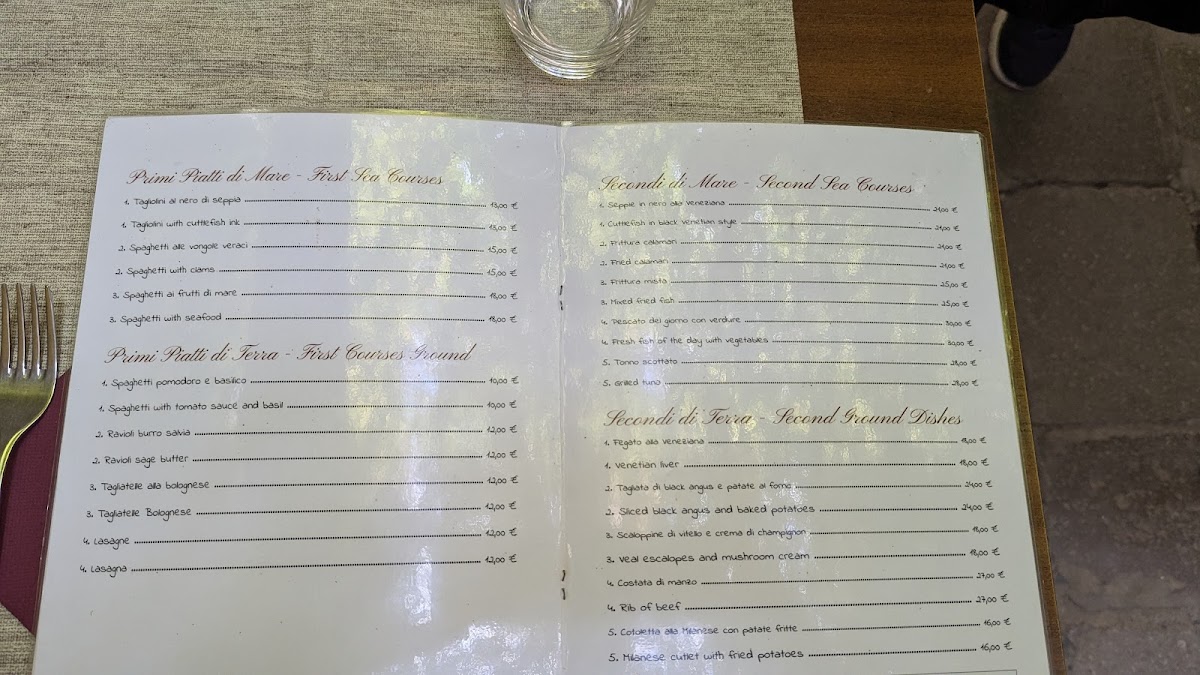 Primi Piatti di Mare - First Sea Courses
1. Tagliolini al nero di seppia 13,00 €
1. Tagliolini with cuttlefish ink 13,00 €
2. Spaghetti alle vongole veraci 15,00 €
2. Spaghetti with clams 15,00 €
3. Spaghetti ai frutti di mare 18,00 €
3. Spaghetti with seafood 18,00 €
Primi Piatti di Terra - First Courses Ground
1. Spaghetti pomodoro e basilico 10,00 €
1. Spaghetti with tomato sauce and basil 10,00 €
2. Ravioli burro salvia 12,00 €
2. Ravioli sage butter 12,00 €
3. Tagliatelle alla bolognese 12,00 €
3. Tagliatelle Bolognese 12,00 €
4. Lasagne 12,00 €
4. Lasagna 12,00 €
Secondi di Mare - Second Sea Courses
1. Seppie in nero alla veneziana 21,00 €
1. Cuttlefish in black Venetian style 21,00 €
2. Frittura calamari 21,00 €
2. Fried calamari 21,00 €
3. Frittura mista 25,00 €
3. Mixed fried fish 25,00 €
4. Pescato del giorno con verdure 30,00 €
4. Fresh fish of the day with vegetables 30,00 €
5. Tonno scottato 28,00 €
5. Grilled tuna 28,00 €
Secondi di Terra - Second Ground Dishes
1. Fegato alla veneziana 18,00 €
1. Venetian liver 18,00 €
2. Tagliata di black angus e patate al forno 24,00 €
2. Sliced black angus and baked potatoes 24,00 €
3. Scaloppine di vitello e crema di champignon 18,00 €
3. Veal escalopes and mushroom cream 18,00 €
4. Costata di manzo 27,00 €
4. Rib of beef 27,00 €
5. Cotoletta alla Milanese con patate fritte 16,00 €
5. Milanese cutlet with fried potatoes 16,00 €